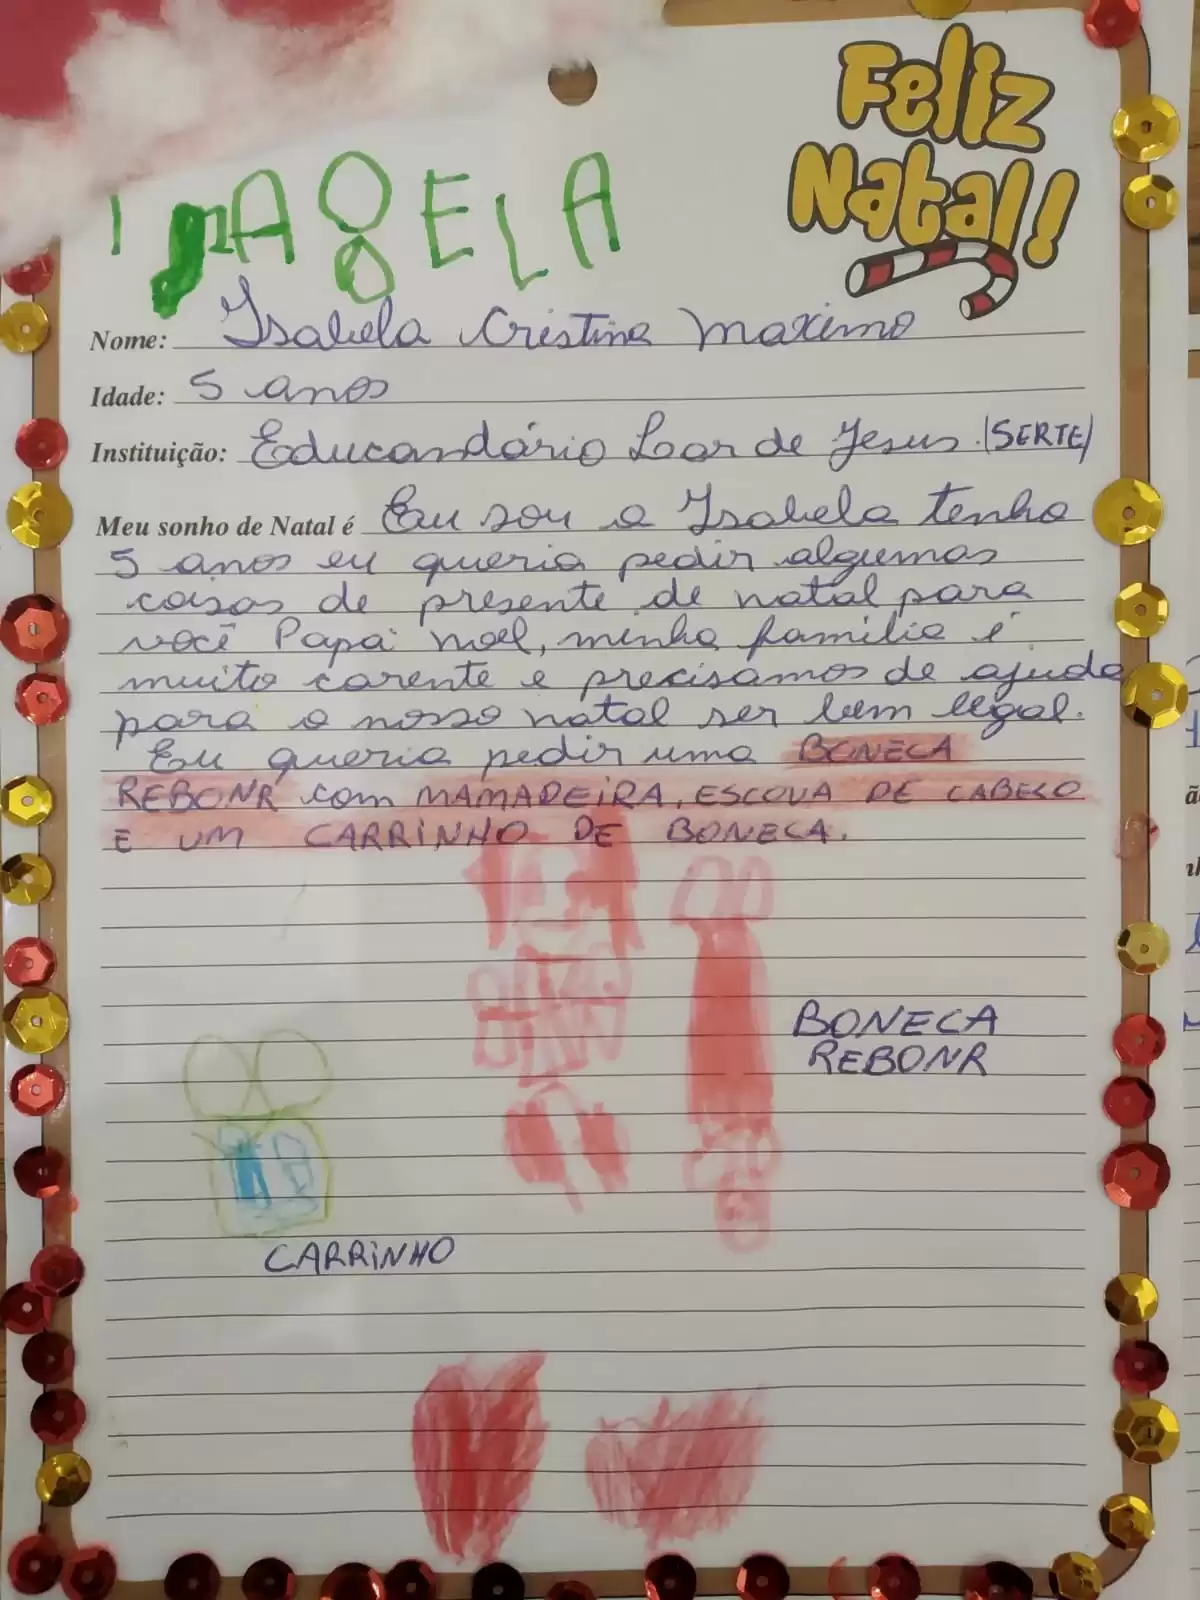 Feliz
Natal!
ISABELA
Nome: Isabela Cristina Maximo
Idade: 5 anos
Instituição: Educandário Lar de Jesus. (SERTE)
Meu sonho de Natal é Eu sou a Isabela tenho
5 anos eu queria pedir algumas
coisas de presente de natal para
você Papai noel, minha família é
muito carente e precisamos de ajuda
para o nosso natal ser bem legal.
Eu queria pedir uma BONECA
REBONR com MAMADEIRA, ESCOVA DE CABELO
E UM CARRINHO DE BONECA.
BONECA
REBONR
CARRINHO